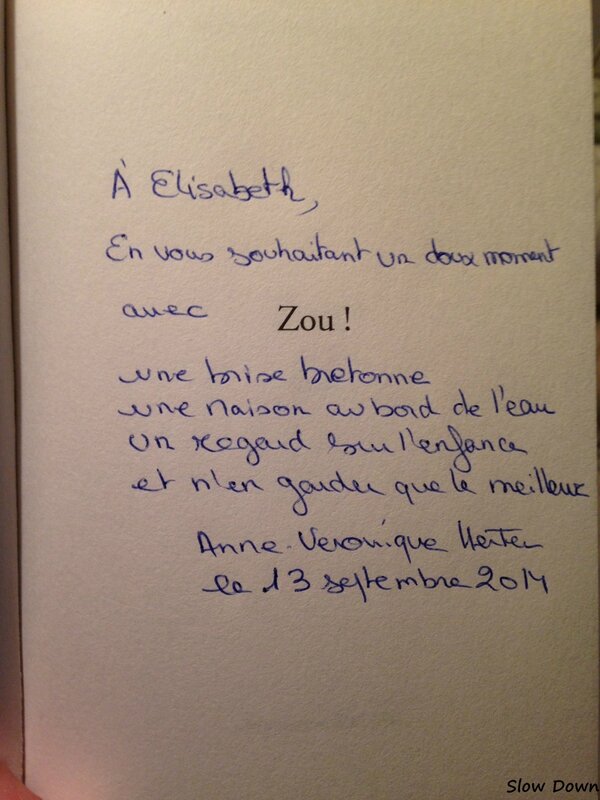 À Elisabeth,
En vous souhaitant un doux moment
avec Zou !
une brise bretonne
une maison au bord de l'eau
un regard sur l'enfance
et n'en garder que le meilleur
Anne-Véronique Herter
le 13 septembre 2014
Slow Down